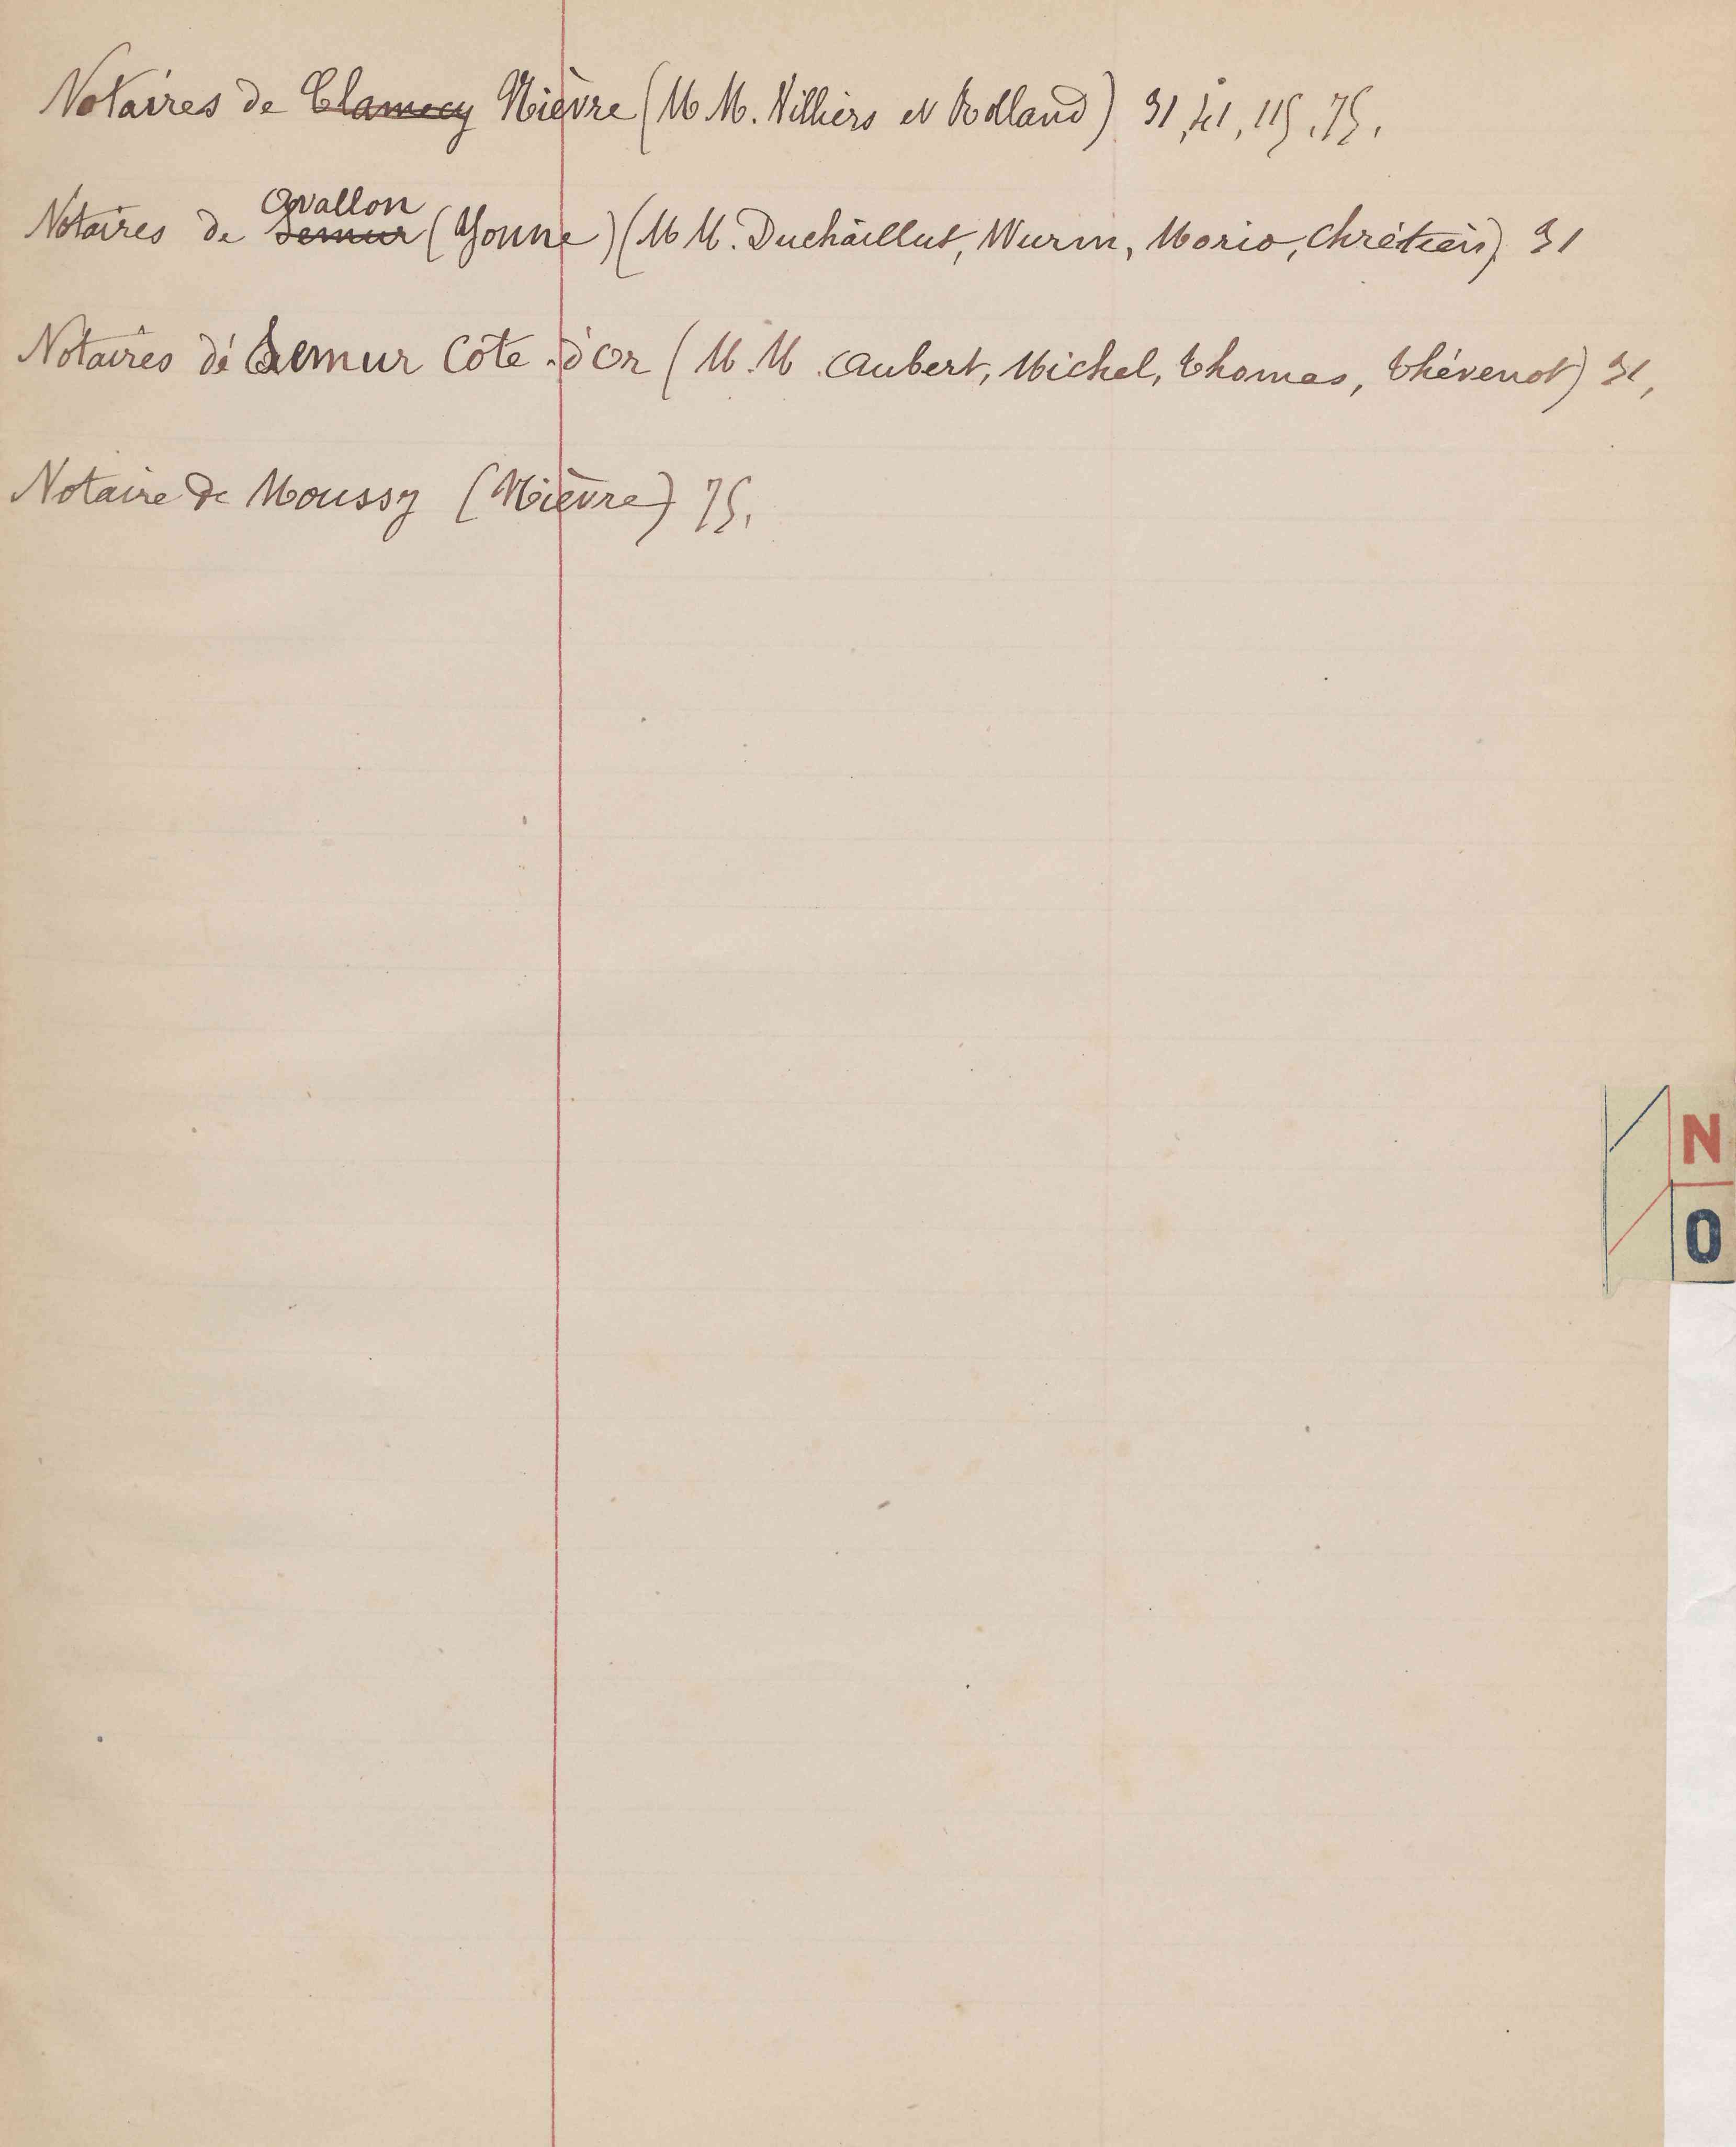 Notaires de Clamecy Nièvre (M M. Villiers et Rolland) 31, 41, 115, 75.
Avallon
Notaires de Semur (Yonne) (M M. Duchâillut, Wurm, Morio, Chrétien) 31
Notaires de Semur Côte-d'Or (M. M. Aubert, Michel, Thomas, Thévenot) 31,
Notaire de Moussy (Nièvre) 75.
N
O